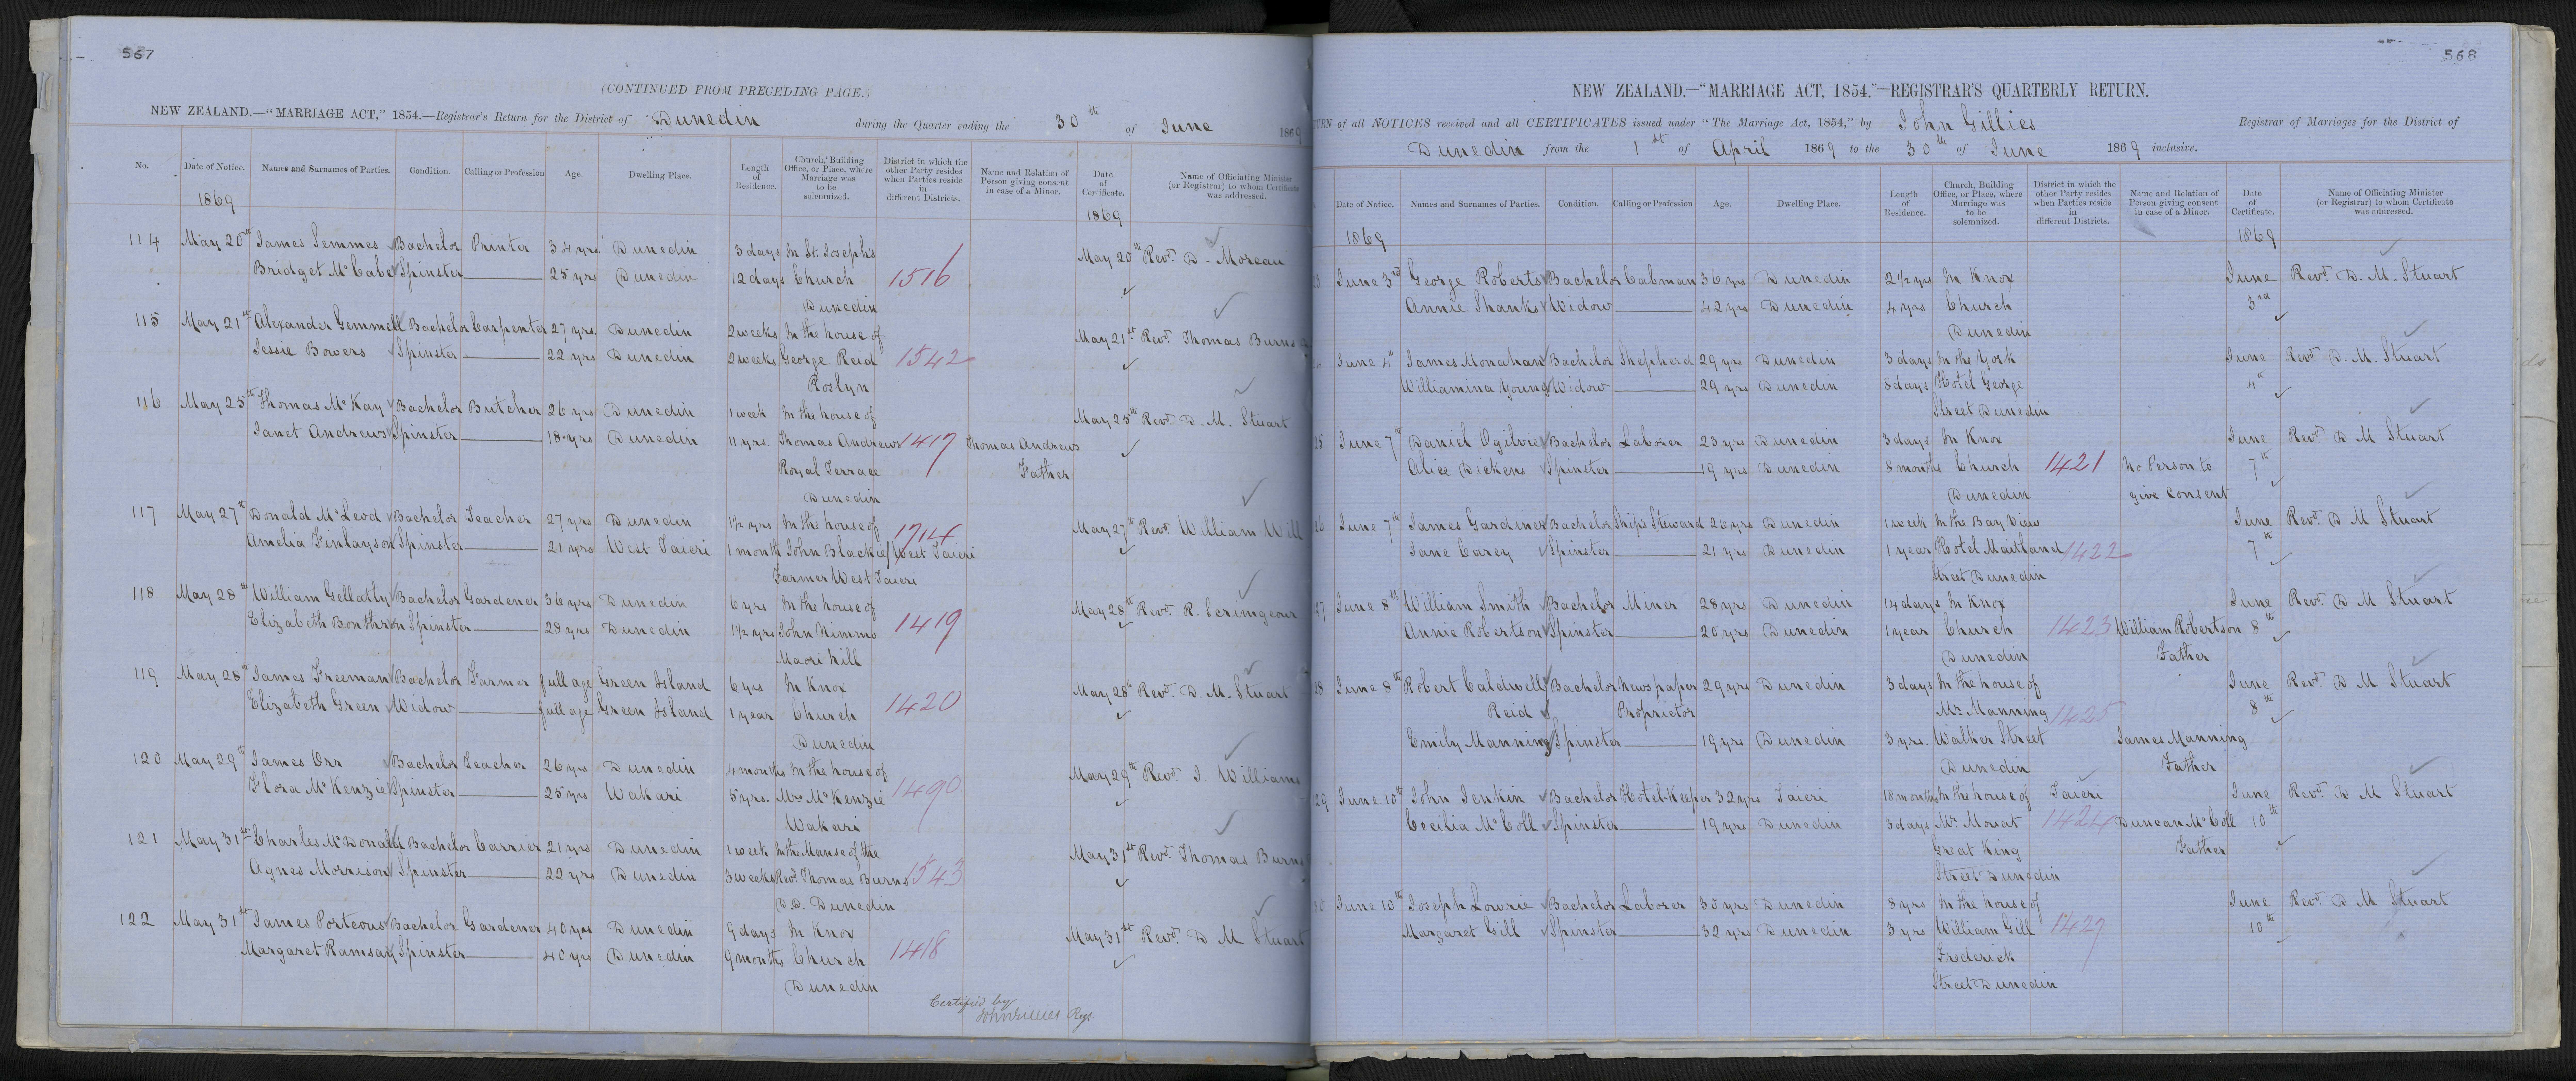 567
(CONTINUED FROM PRECEDING PAGE.)
NEW ZEALAND.—"MARRIAGE ACT," 1854.—Registrar's Return for the District of Dunedin during the Quarter ending the 30th of June 1869
No. Date of Notice. Names and Surnames of Parties. Condition. Calling or Profession Age. Dwelling Place. Length of Residence. Church, Building Office, or Place, where Marriage was to be solemnized. District in which the other Party resides when Parties reside in different Districts. Name and Relation of Person giving consent in case of a Minor. Date of Certificate. Name of Officiating Minister (or Registrar) to whom Certificate was addressed.
1869 1869
114 May 20th James Semmes Bachelor Printer 34 yrs. Dunedin 3 days In St. Joseph's May 20th Revd. D. Moreau
Bridget McCabe Spinster 25 yrs Dunedin 12 days Church 1516
Dunedin
115 May 21st Alexander Gemmell Bachelor Carpenter 27 yrs. Dunedin 2 weeks In the house of May 21st Revd. Thomas Burns
Jessie Bowers Spinster 22 yrs Dunedin 2 weeks George Reid 1542
Roslyn
116 May 25th Thomas McKay Bachelor Butcher 26 yrs Dunedin 1 week In the house of May 25th Revd. D. M. Stuart
Janet Andrews Spinster 18 yrs Dunedin 11 yrs. Thomas Andrews 1417 Thomas Andrews
Royal Terrace Father
Dunedin
117 May 27th Donald McLeod Bachelor Teacher 27 yrs Dunedin 1½ yrs In the house of 1714 May 27th Revd. William Will
Amelia Finlayson Spinster 21 yrs West Taieri 1 month John Blackie West Taieri
Farmer West Taieri
118 May 28th William Gellatly Bachelor Gardener 36 yrs Dunedin 6 yrs In the house of May 28th Revd. R. Scrimgeour
Elizabeth Bonthron Spinster 28 yrs Dunedin 1½ yrs John Nimmo 1419
Maori hill
119 May 28th James Freeman Bachelor Farmer full age Green Island 6 yrs In Knox May 28th Revd. D. M. Stuart
Elizabeth Green Widow full age Green Island 1 year Church 1420
Dunedin
120 May 29th James Orr Bachelor Teacher 26 yrs Dunedin 4 months In the house of May 29th Revd. J. Williams
Flora McKenzie Spinster 25 yrs Wakari 5 yrs. Mrs McKenzie 1490
Wakari
121 May 31st Charles McDonald Bachelor Carrier 21 yrs Dunedin 1 week In the Manse of the May 31st Revd. Thomas Burns
Agnes Morrison Spinster 22 yrs Dunedin 3 weeks Revd. Thomas Burns 1543
D.D. Dunedin
122 May 31st James Porteous Bachelor Gardener 40 yrs Dunedin 9 days In Knox May 31st Revd. D M Stuart
Margaret Ramsay Spinster 40 yrs Dunedin 9 months Church 1418
Dunedin
Certified by
John Gillies Regr.
568
NEW ZEALAND.—"MARRIAGE ACT, 1854."—REGISTRAR'S QUARTERLY RETURN.
of all NOTICES received and all CERTIFICATES issued under "The Marriage Act, 1854," by John Gillies Registrar of Marriages for the District of
Dunedin from the 1st of April 1869 to the 30th of June 1869 inclusive.
Date of Notice. Names and Surnames of Parties. Condition. Calling or Profession Age. Dwelling Place. Length of Residence. Church, Building Office, or Place, where Marriage was to be solemnized. District in which the other Party resides when Parties reside in different Districts. Name and Relation of Person giving consent in case of a Minor. Date of Certificate. Name of Officiating Minister (or Registrar) to whom Certificate was addressed.
1869 1869
June 3rd George Roberts Bachelor Cabman 36 yrs Dunedin 2½ yrs In Knox June Revd. D. M. Stuart
Annie Shanks Widow 42 yrs Dunedin 4 yrs Church 3rd
Dunedin
June 4th James Monahan Bachelor Shepherd 29 yrs Dunedin 3 days In the York June Revd. D. M. Stuart
Williamina Young Widow 29 yrs Dunedin 8 days Hotel George 4th
Street Dunedin
25 June 7th Daniel Ogilvie Bachelor Laborer 23 yrs Dunedin 3 days In Knox June Revd. D M Stuart
Alice Dickens Spinster 19 yrs Dunedin 8 months Church 1421 No Person to 7th
Dunedin give consent
26 June 7th James Gardiner Bachelor Ships Steward 26 yrs Dunedin 1 week In the Bay View June Revd. D M Stuart
Jane Carey Spinster 21 yrs Dunedin 1 year Hotel Maitland 1422 7th
Street Dunedin
27 June 8th William Smith Bachelor Miner 28 yrs Dunedin 14 days In Knox June Revd. D M Stuart
Annie Robertson Spinster 20 yrs Dunedin 1 year Church 1423 William Robertson 8th
Dunedin Father
28 June 8th Robert Caldwell Bachelor Newspaper 29 yrs Dunedin 3 days In the house of June Revd. D M Stuart
Reid Proprietor Mr. Manning 1425 8th
Emily Manning Spinster 19 yrs Dunedin 3 yrs. Walker Street James Manning
Dunedin Father
29 June 10th John Jenkin Bachelor Hotel-Keeper 32 yrs Taieri 18 months In the house of Taieri June Revd. D M Stuart
Cecilia McColl Spinster 19 yrs Dunedin 3 days Mr. Mouat 1424 Duncan McColl 10th
Great King Father
Street Dunedin
30 June 10th Joseph Lowrie Bachelor Laborer 30 yrs Dunedin 8 yrs In the house of June Revd. D M Stuart
Margaret Gill Spinster 32 yrs Dunedin 3 yrs William Gill 1427 10th
Frederick
Street Dunedin